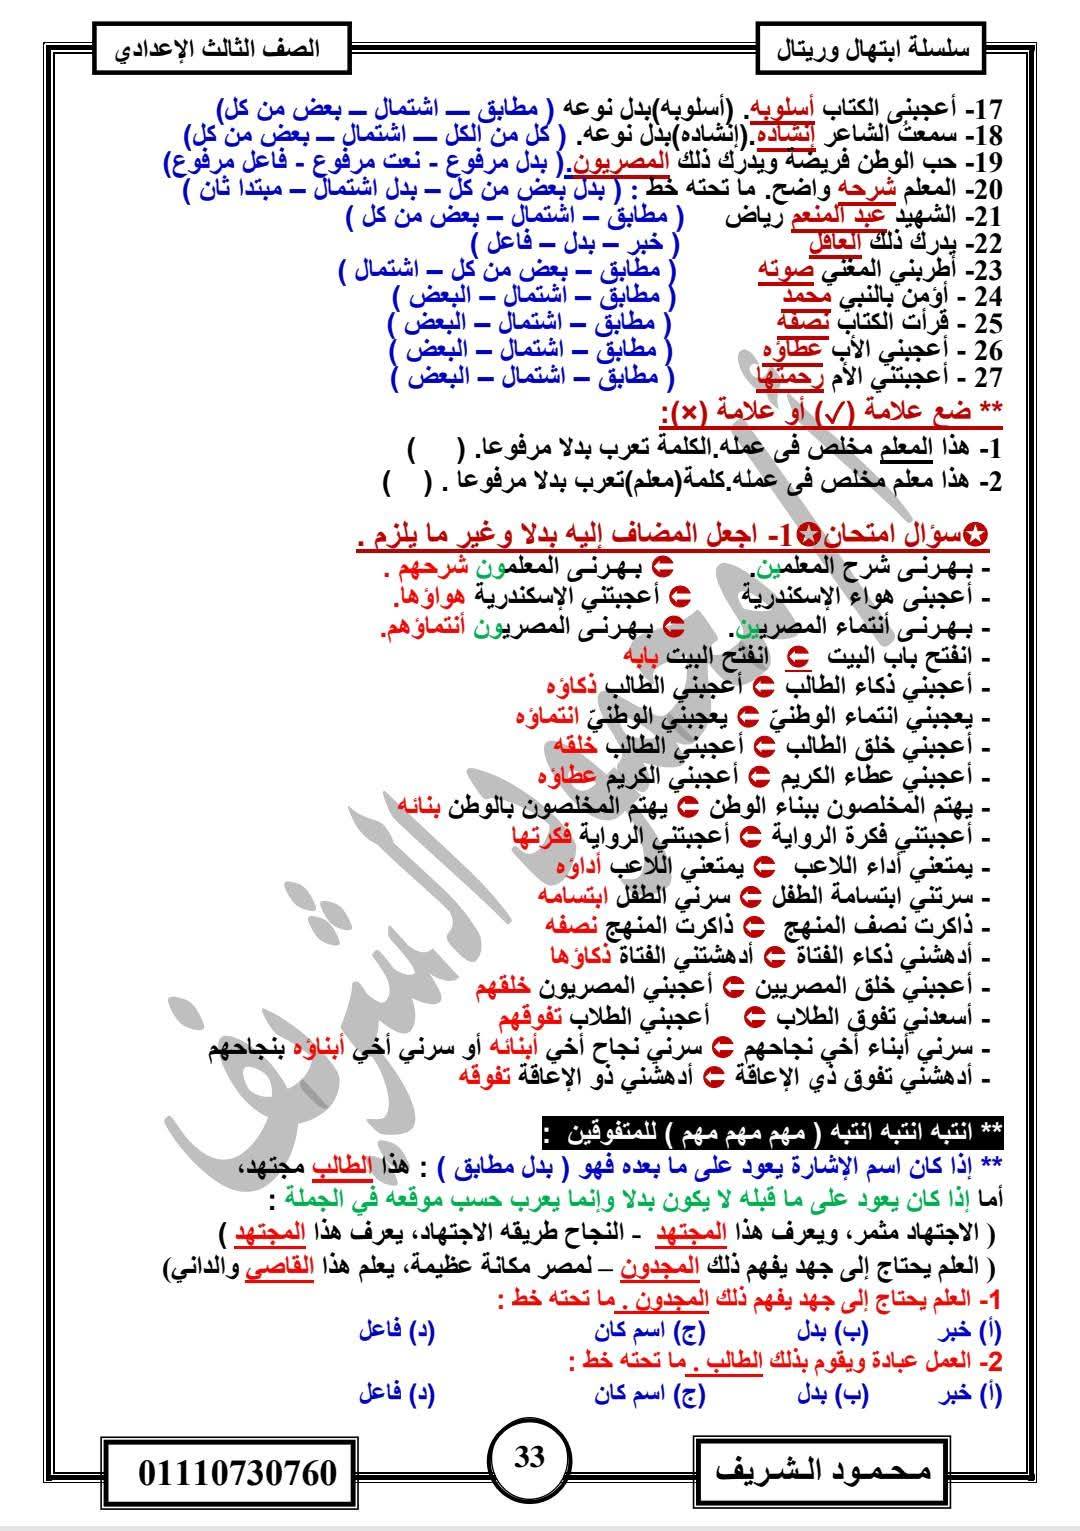 سلسلة ابتهال وريتال
الصف الثالث الإعدادي
17- أعجبنى الكتاب أسلوبه. (أسلوبه)بدل نوعه ( مطابق – اشتمال – بعض من كل)
18- سمعت الشاعر إنشاده.(إنشاده)بدل نوعه. ( كل من الكل – اشتمال – بعض من كل)
19- حب الوطن فريضة ويدرك ذلك المصريون.( بدل مرفوع - نعت مرفوع - فاعل مرفوع)
20- المعلم شرحه واضح. ما تحته خط : ( بدل بعض من كل – بدل اشتمال – مبتدا ثان )
21- الشهيد عبد المنعم رياض ( مطابق – اشتمال – بعض من كل )
22- يدرك ذلك العاقل ( خبر – بدل – فاعل )
23- أطربني المغني صوته ( مطابق – بعض من كل – اشتمال )
24 - أؤمن بالنبي محمد ( مطابق – اشتمال – البعض )
25 - قرأت الكتاب نصفه ( مطابق – اشتمال – البعض )
26 - أعجبني الأب عطاؤه ( مطابق – اشتمال – البعض )
27 - أعجبتني الأم رحمتها ( مطابق – اشتمال – البعض )
** ضع علامة (√) أو علامة (×):
1- هذا المعلم مخلص فى عمله.الكلمة تعرب بدلا مرفوعا. ( )
2- هذا معلم مخلص فى عمله.كلمة(معلم)تعرب بدلا مرفوعا . ( )
✪سؤال امتحان✪1- اجعل المضاف إليه بدلا وغير ما يلزم .
- بـهـرنـى شرح المعلمين. بـهـرنـى المعلمون شرحهم .
- أعجبنى هواء الإسكندرية أعجبتني الإسكندرية هواؤها.
- بـهـرنـى أنتماء المصريين. بـهـرنـى المصريون أنتماؤهم.
- انفتح باب البيت انفتح البيت بابه
- أعجبني ذكاء الطالب أعجبني الطالب ذكاؤه
- يعجبني انتماء الوطنيّ يعجبني الوطنيّ انتماؤه
- أعجبني خلق الطالب أعجبني الطالب خلقه
- أعجبني عطاء الكريم أعجبني الكريم عطاؤه
- يهتم المخلصون ببناء الوطن يهتم المخلصون بالوطن بنائه
- أعجبتني فكرة الرواية أعجبتني الرواية فكرتها
- يمتعني أداء اللاعب يمتعني اللاعب أداؤه
- سرتني ابتسامة الطفل سرني الطفل ابتسامه
- ذاكرت نصف المنهج ذاكرت المنهج نصفه
- أدهشني ذكاء الفتاة أدهشتني الفتاة ذكاؤها
- أعجبني خلق المصريين أعجبني المصريون خلقهم
- أسعدني تفوق الطلاب أعجبني الطلاب تفوقهم
- سرني أبناء أخي نجاحهم سرني نجاح أخي أبنائه أو سرني أخي أبناؤه بنجاحهم
- أدهشني تفوق ذي الإعاقة أدهشني ذو الإعاقة تفوقه
** انتبه انتبه انتبه ( مهم مهم مهم ) للمتفوقين :
** إذا كان اسم الإشارة يعود على ما بعده فهو ( بدل مطابق ) : هذا الطالب مجتهد،
أما إذا كان يعود على ما قبله لا يكون بدلا وإنما يعرب حسب موقعه في الجملة :
( الاجتهاد مثمر، ويعرف هذا المجتهد - النجاح طريقه الاجتهاد، يعرف هذا المجتهد )
( العلم يحتاج إلى جهد يفهم ذلك المجدون – لمصر مكانة عظيمة، يعلم هذا القاصي والداني)
1- العلم يحتاج إلى جهد يفهم ذلك المجدون . ما تحته خط :
(أ) خبر (ب) بدل (ج) اسم كان (د) فاعل
2- العمل عبادة ويقوم بذلك الطالب . ما تحته خط :
(أ) خبر (ب) بدل (ج) اسم كان (د) فاعل
أ/محمود الشريف
مـحـمـود الـشـريف
33
01110730760